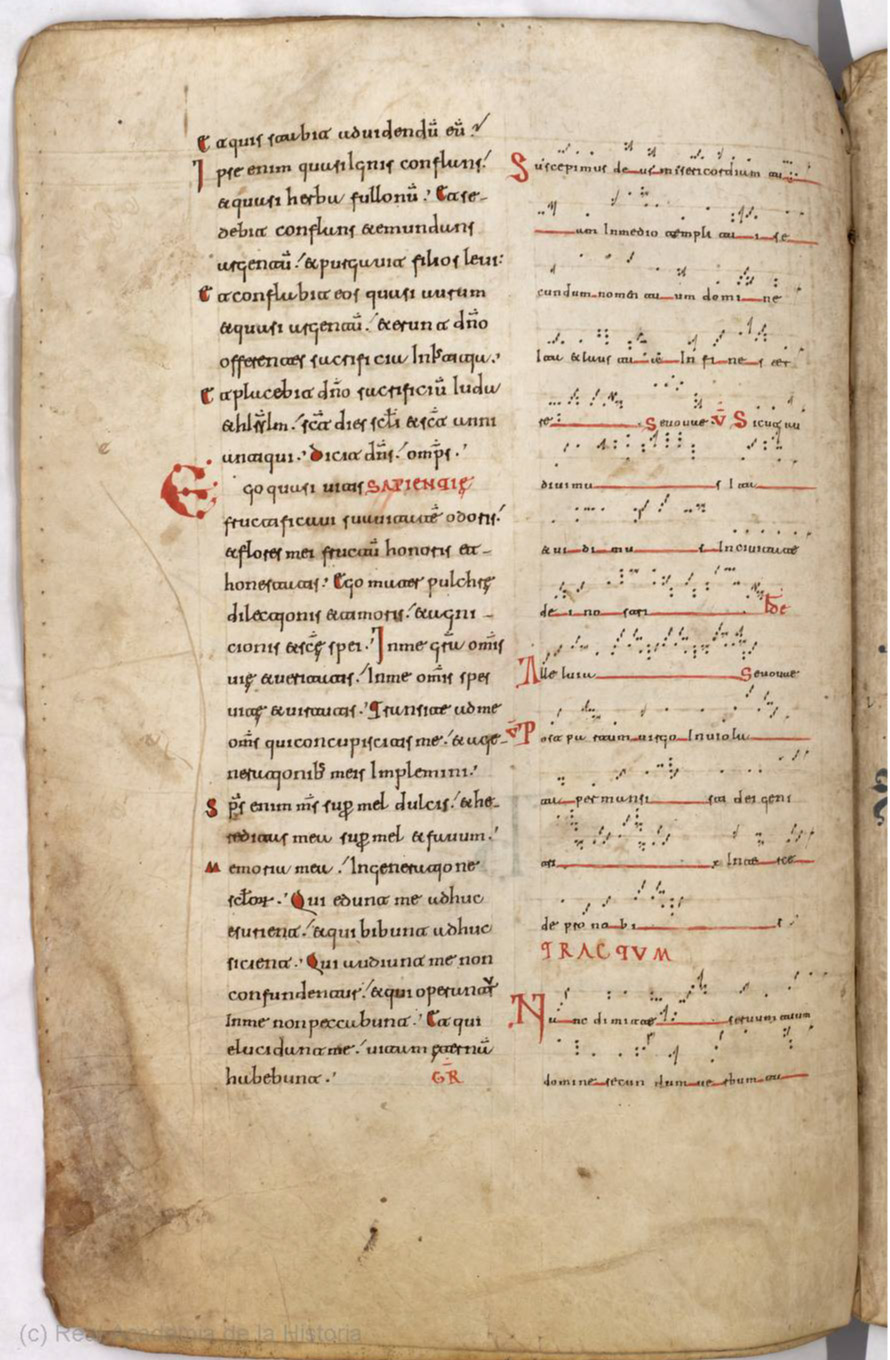 Et quis stabit ad uidendũ eũ
Ipse enim quasi Ignis conflans
et quasi herba fullonũ. Et se-
debit conflans et emundans
argentũ et purgauit filios leui
Et conflabit eos quasi aurum
et quasi argentũ et erunt dño
offerentes sacrificiu In
Et placebit dño sacrificiũ Iuda
et hłrlm sča dies scłi et sča anni
antiqui. Dicit dñs omps.
Ego quasi uitis SAPIENTIĘ
fructificaui suauitatẽ odoris
et flores mei fructũ honoris et-
honestatis. Ego mater pulchrę
dilectionis et timoris et agni-
cionis et sčę spei. In me omis
uię et ueritatis. In me omis spes
uitę et uirtutis. Transite ad me
oms qui concupiscitis me et a ge-
nerationib meis Implemini.
Sps enim ms sup mel dulcis et he-
reditas mea sup mel et fauum.
Memoria mea In generatione
Qui edunt me adhuc
esurient et qui bibunt adhuc
sicient. Qui audiunt me non
confundentur et qui operantr
In me non peccabunt. Et qui
elucidant me uitam eternũ
habebunt. GR
Suscepimus deus misericordiam tu
am In medio templi tui se
cundum nomen tuum domine
Ita et laus tua In fines ter
re Seuouae V Sicut au
diuimus Ita
et uidimus In ciuitate
dei nostri
Alleluia Seuouae
V Post partum uirgo Inuiola
ta permansisti dei geni
trix Interce
de pro nobis
TRACTVM
Nunc dimittis seruum tuum
domine secundum uerbum tu
(c) Real Academia de la Historia